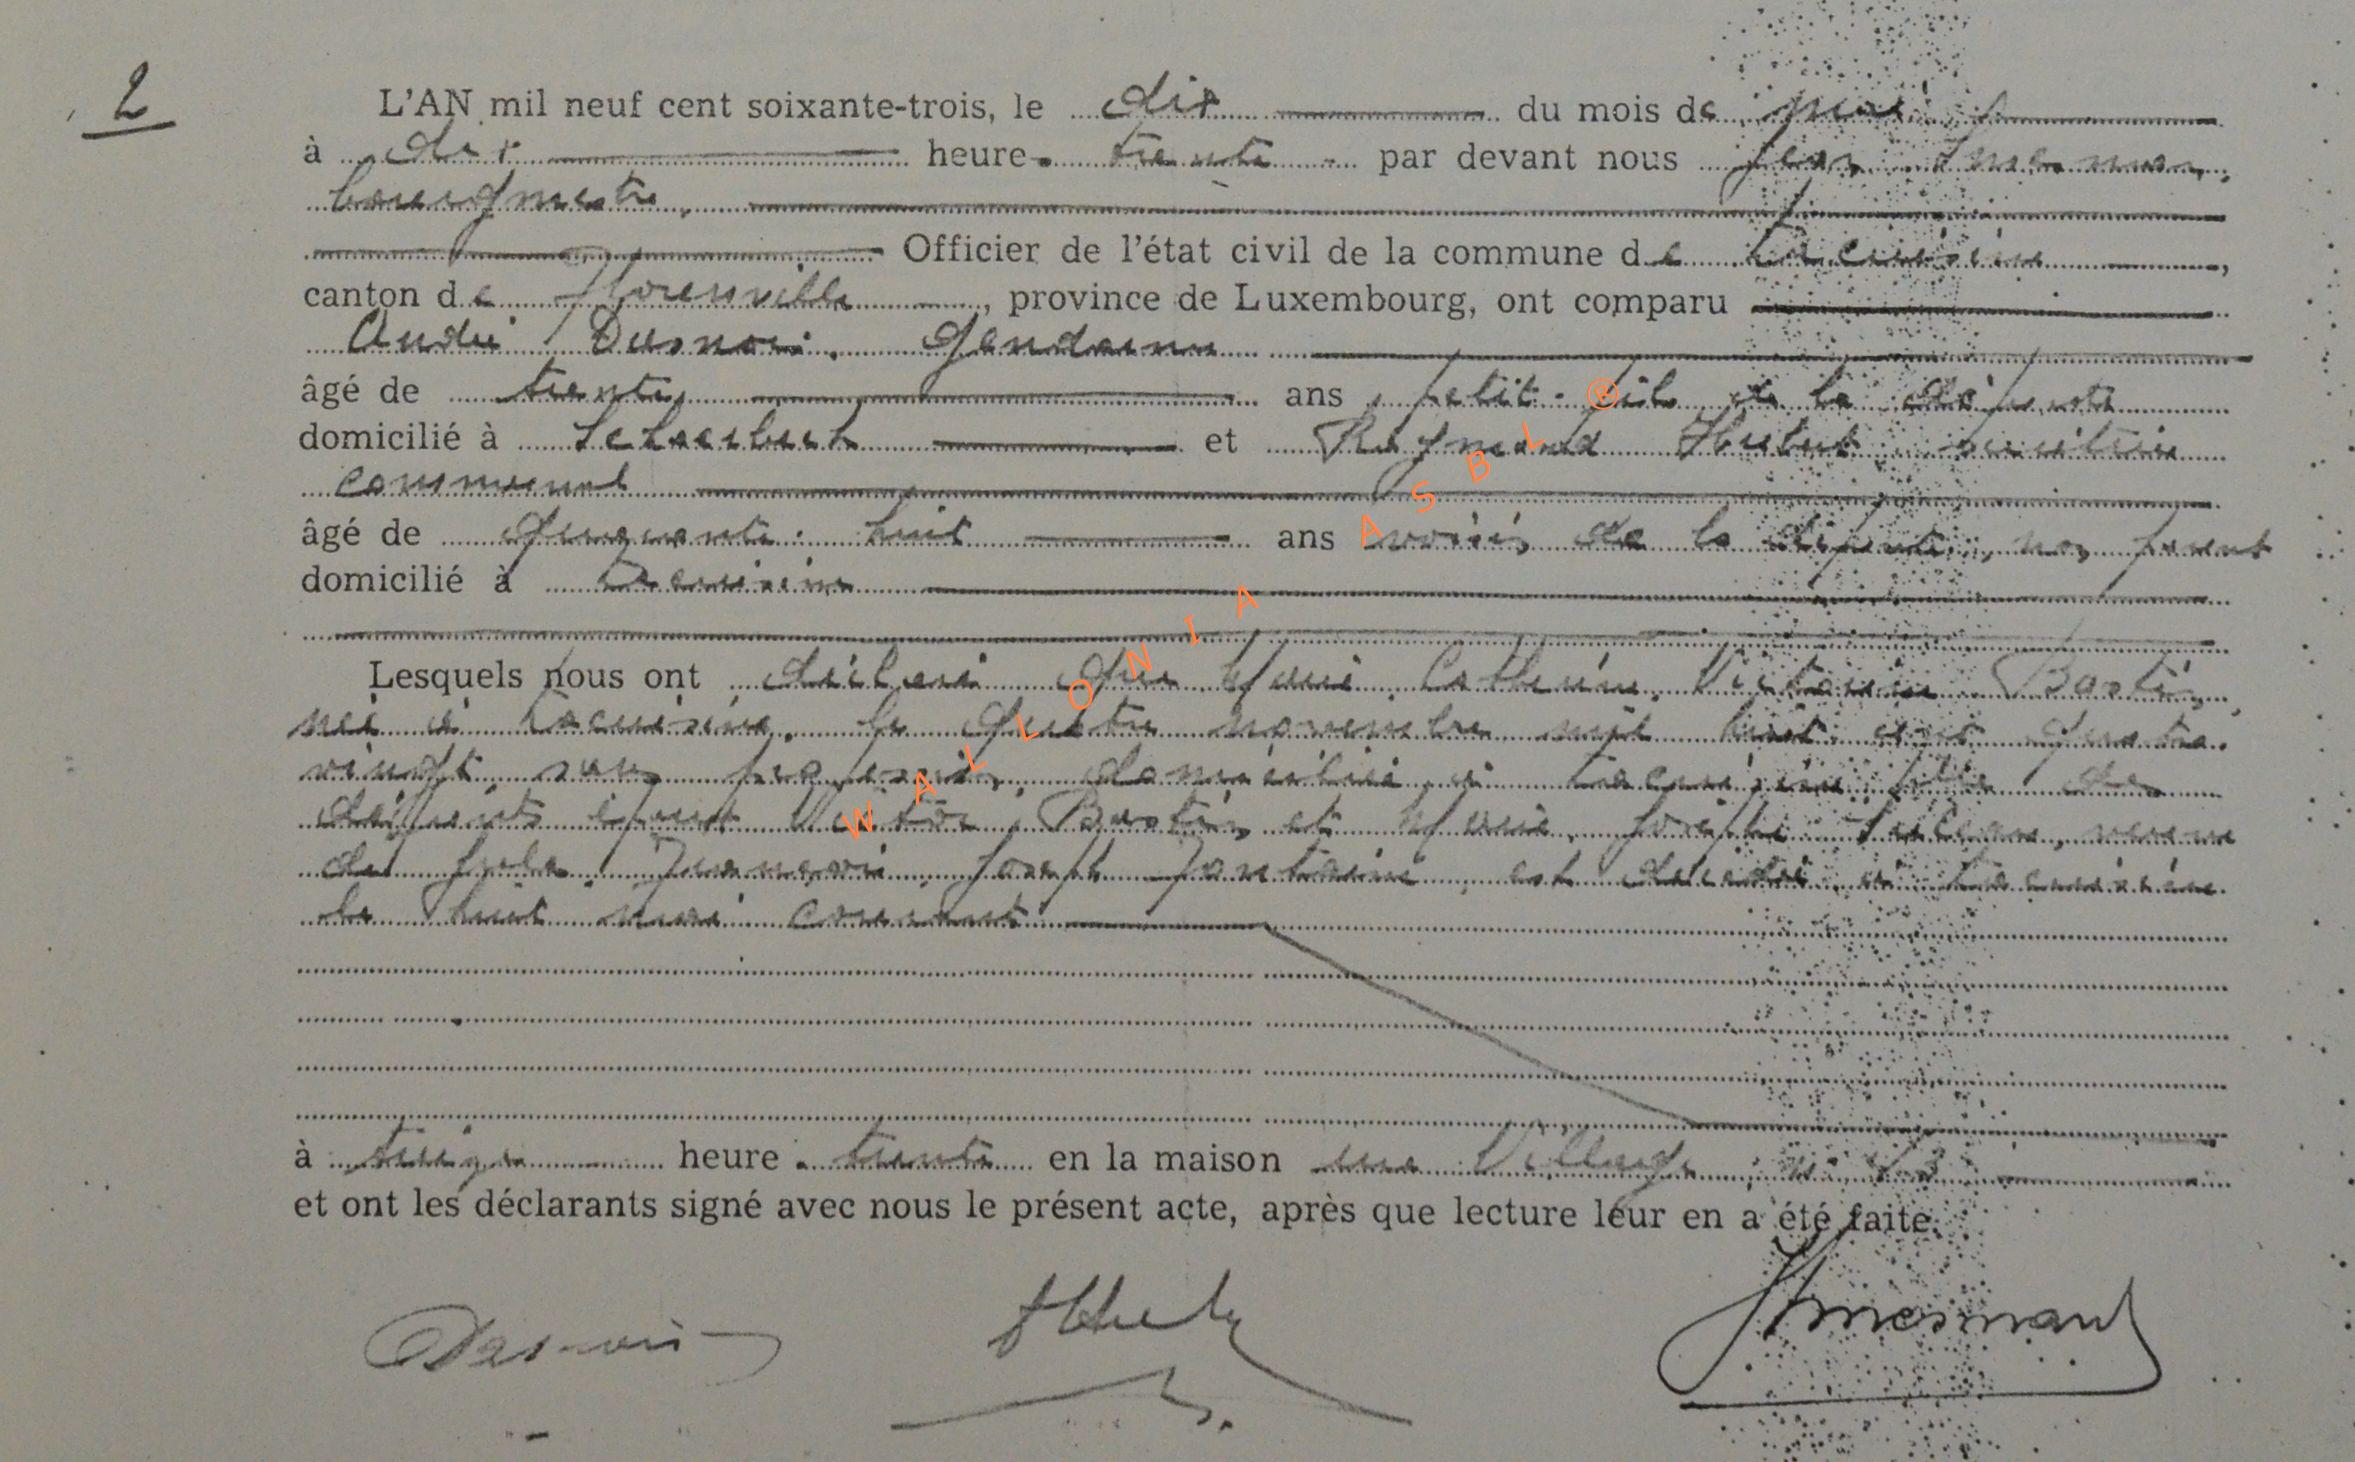 2
L'AN mil neuf cent soixante-trois, le dix du mois de mai
à dix heure trente par devant nous Jean
bourgmestre,
Officier de l'état civil de la commune de Lacuisine,
canton de Florenville, province de Luxembourg, ont comparu
André Dusnoi. gendarme
âgé de trente ans petit-fils de la défunte
domicilié à Schaerbeek et Raymond Hubert secrétaire
communal
âgé de quarante-huit ans voisin de la défunte, non parent
domicilié à Lacuisine
Lesquels nous ont déclaré que Marie Catherine Victorine Bastin,
née à Lacuisine, le quatre novembre mil huit cent quatre
vingt sans profession, domiciliée à Lacuisine fille des
défunts époux Victor Bastin et Marie Josèphe, veuve
de Jules Joseph Fontaine, est décédée à Lacuisine
le huit mai courant
à seize heure trente en la maison rue Village, n°
et ont les déclarants signé avec nous le présent acte, après que lecture leur en a été faite.
WALLONIA ASBL ®